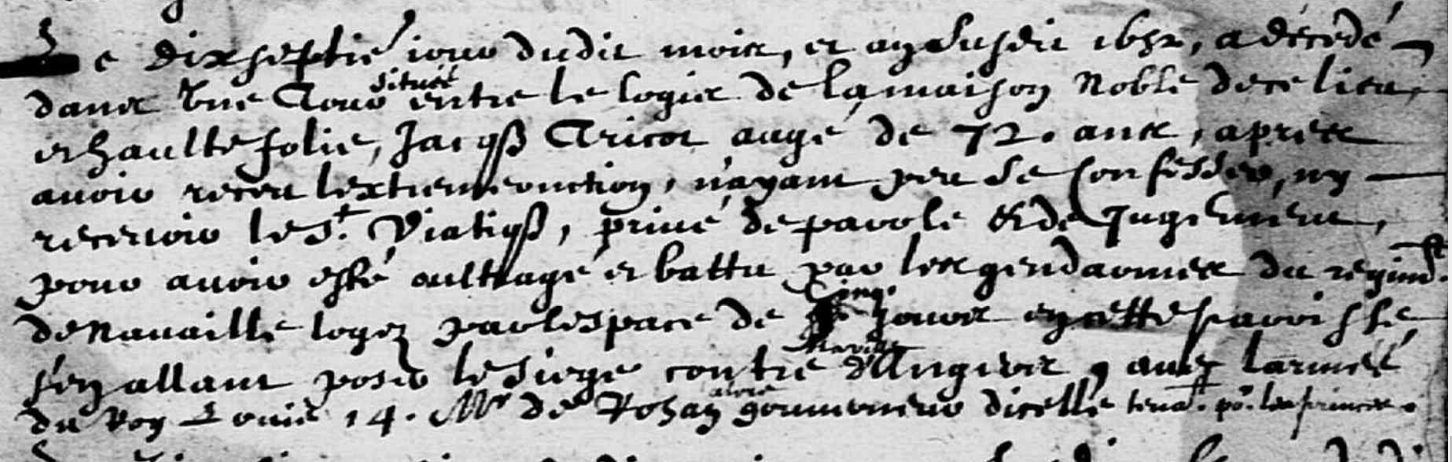 Le dixseptie jour dudit mois, et an susdit 1652, a décédé
dans une Cour située entre le logis de la maison Noble de ce lieu,
et haulte folie, Jacqs Tricot augé de 72. ans, apres
avoir receu lextremeonction, n'ayant peu se confesser, ny
recevoir le St. Viatiqs, privé de parole & de Jugement,
pour avoir esté oultragé et battu par les gendarmes du regimt.
de Navaille logez par lespace de cinq jours en cette parroisse,
s'en allant poser le siege contre la ville Angers, avec larmée
du Roy Louis 14. Mr de Rohan alors gouverneur dicelle tenat. por. les princes.